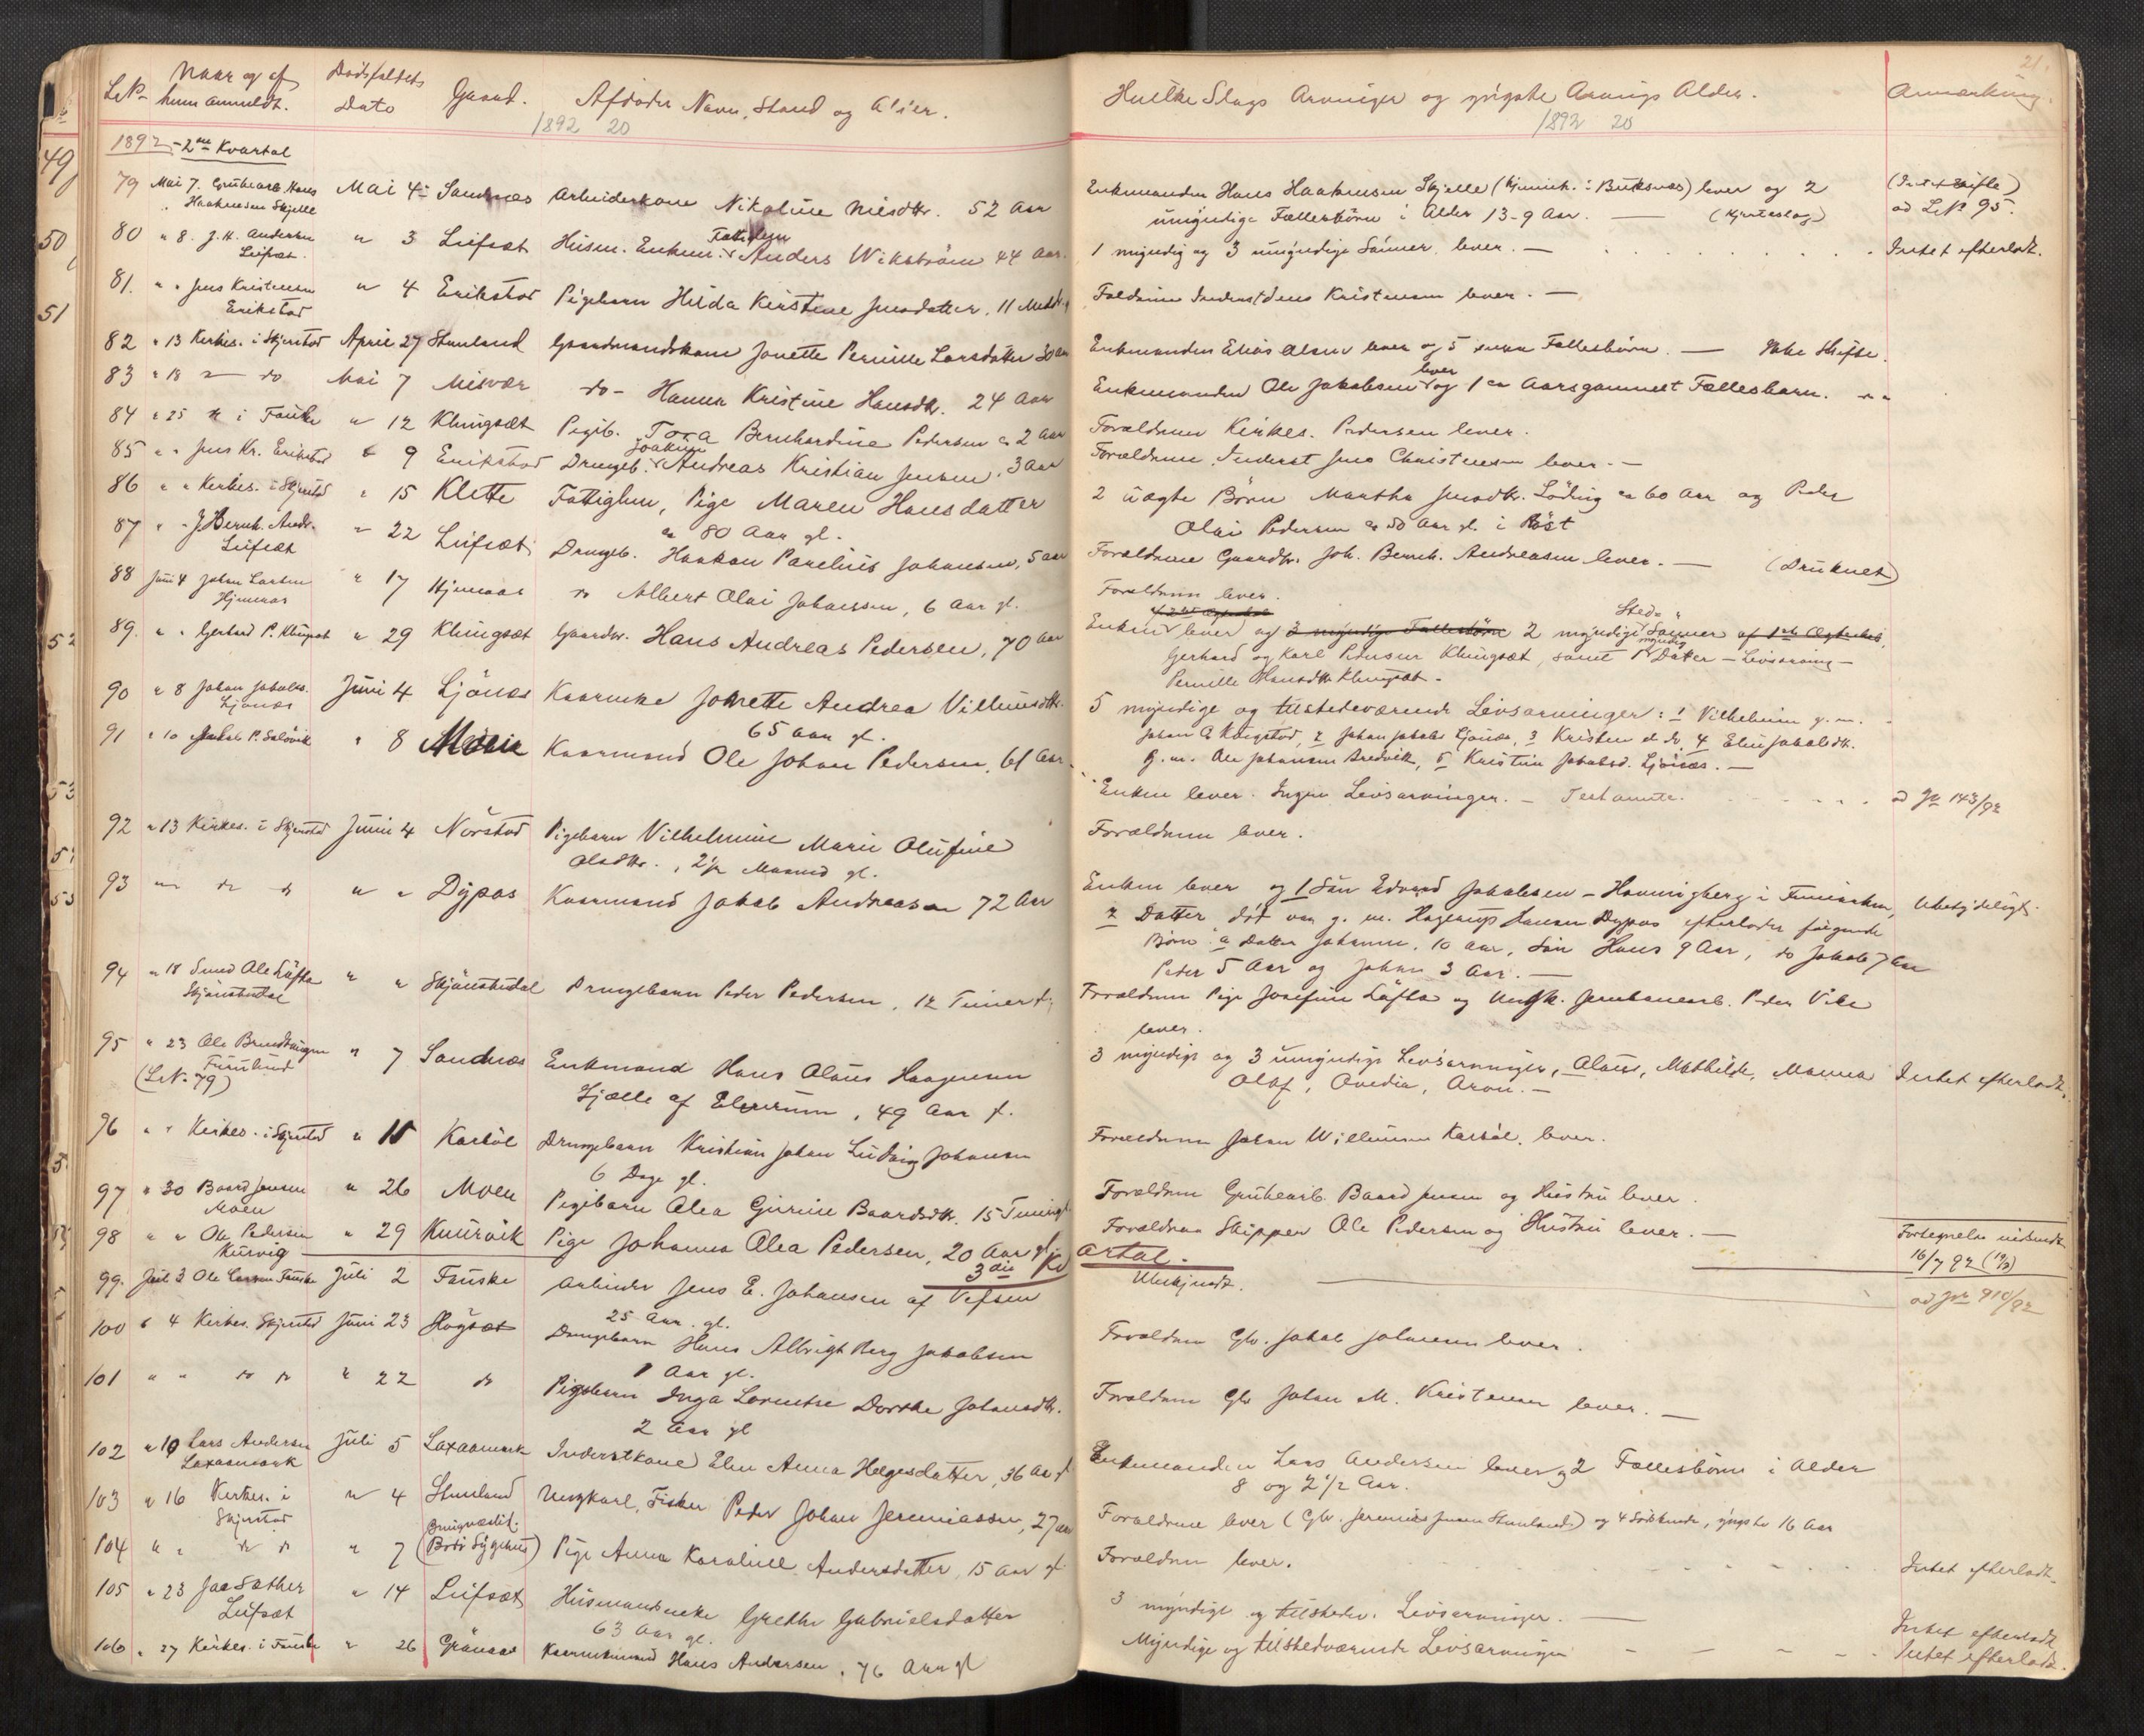 LNo Naar og af hvem anmeldt. Dødsfaldets Dato Gaard. Afdødes Navn, Stand og Alder.
1892 20
1892 - 2det Kvartal
79 Mai 7. Grubearb. Hans Haakensen Skjelle Mai 4 Sandnæs Arbeiderkone Nikoline Nilsdtr. 52 Aar
80 " 8. J. H. Andersen Leifsæt. " 3 Leifsæt Husm. Enkem. Fattiglem Anders Wikström 44 Aar.
81. " " Jens Kristensen Erikstad " 4 Erikstad Pigebarn Hilda Kirstine Jensdatter, 11 Mdr
82 " 13 Kirkes. i Skjerstad April 27 Stenland Gaardmandskone Jonette Pernille Larsdatter 30 Aar
83 " 18 " do Mai 7 Misvær do - Hanna Kristine Hansdtr. 24 Aar
84 " 25 " i Fauske " 12 Klungsæt Pigeb. Tora Bernhardine Pedersen ca 2 Aar
85 " " Jens Kr. Erikstad " 9 Erikstad Drengeb. Joakim Andreas Kristian Jensen. 3 Aar
86 " " Kirkes. i Skjerstad " 15 Klette Fattiglem, Pige Maren Hansdatter
ca 80 Aar gl.
87 " " J. Bernh. Andr. Leifsæt " 22 Leifsæt Drengeb. Haakon Parelius Johansen, 5 Aar
88 Juni 4 Johan Larsen Hjemaas " 17 Hjemaas do Albert Olai Johansen, 6 Aar gl.
89. " " Gerhard P. Klungsæt " 29 Klungsæt Gaardbr. Hans Andreas Pedersen, 70 Aar
90 " 8 Johan Jakobs. Ljønæs Juni 4 Ljønæs Kaarenke Jonette Andrea Villumsdtr.
65 Aar gl.
91 " 10 Jakob P. Saløvik " 8 Kaarmand Ole Johan Pedersen, 61 Aar.
92 " 13 Kirkes. i Skjerstad Juni 4 Nørstad Pigebarn Vilhelmine Marie Olufine
Olsdtr., 2½ Maaned gl.
93 " do do " " Dypaas Kaarmand Jakob Andreassen 72 Aar
94 " 18 Ole Løfta Skjønstudal " " Skjønstudal Drengebarn Peder Pedersen, 12 Timer
95 " 23 Ole Furulund (LNo 79) " 7 Sandnæs Enkemand Hans Olaus Haagensen
Hjelle af Elverum, 49 Aar
96 " " Kirkes. i Skjerstad " 11 Karbøl Drengebarn Kristian Johan Ludvig Johansen
6 Dage gl.
97 " 30 Baard Jensen Moen " 26 Moen Pigebarn Olea Gurine Baardsdtr. 15 Timer gl
98 " " Ole Pedersen Kurvig " 29 Kurvik Pige Johanna Olea Pedersen, 20 Aar gl
3die Kvartal.
99. Juli 3 Ole Larsen Fauske Juli 2 Fauske Arbeider Jens E. Johansen af Vefsen
25 Aar gl.
100 " 4 Kirkes. Skjerstad Juni 23 Høgsæt Drengebarn Hans Albrigt Berg Jakobsen
1 Aar gl.
101 " " do do " 22 do Pigebarn Inga Lorentse Dorthe Johansdtr.
2 Aar gl
102 " 10 Lars Andersen Laxaamark Juli 5 Laxaamark Inderstkone Elen Anna Helgesdatter, 36 Aar
103 " 16 Kirkes. i Skjerstad " 4 Stenland Ungkarl, Fisker Peder Johan Jeremiassen, 27 Aar
104 " " do do " 7 (Bodø Sygehus) Pige Anna Karoline Andersdatter, 15 Aar gl
105 " 23 Sæther Leifsæt " 14 Leifsæt Husmandsenke Grethe Gabrielsdatter
63 Aar gl.
106 " 27 Kirkes. i Fauske " 26 Grønaas Kaarmand Hans Andersen, 76 Aar gl
49
50
51
52
53
Hvilke Slags Arvinger og yngste Arvings Alder. Anmærkning. 21.
1892 20
Enkemanden Hans Haakensen Skjelle (hjemmeh. i Buksnæs) lever og 2 (Intet Skifte)
umyndige Fællesbørn i Alder 13-9 Aar. — (Hjerteslag) ad LNo 95.
1 myndig og 3 umyndige Sønner lever. — Intet efterladt.
Forældrene Inderst Jens Kristensen lever. —
Enkemanden Elias Olsen lever og 5 smaa Fællesbørn. — Ikke Skifte.
Enkemanden Ole Jakobsen lever og 1 ca Aarsgammelt Fællesbarn. " "
Forældrene Kirkes. Pedersen lever.
Forældrene Inderst Jens Christensen lever. —
2 uægte Børn Martha Jensdtr. Løding ca 60 Aar og Peder
Olai Pedersen ca 50 Aar gl. i Røst
Forældrene Gaardbr. Joh. Bernh. Andreasen lever. — (Druknet)
Forældrene lever.
Enken lever og 3 myndige Fællesbørn 2 myndige Sted Sønner af 1ste Ægteskab,
Gerhard og Karl Pedersen Klungsæt, samt 1 myndig Datter - Livsarving -
Pernille Hansdtr Klungsæt.
5 myndige og tilstedeværende Livsarvinger: 1 Vilhelmine g. m.
Johan A. Kongstad, 2 Johan Jakobs Ljønæs, 3 Kristen do, 4 Elen Jakobsdtr.
g. m. Ole Johansen Bredvik, 5 Kristine Jakobsd. Ljønæs. —
Enken lever. Ingen Livsarvinger. — Testamente. ad Jr 143/92
Forældrene lever.
Enken lever og 1 Søn Edvard Jakobsen - Havningberg i Finmarken, Ubetydeligt.
2 Datter død var g. m. Hagerup Hansen Dypaas efterlader følgende
Børn: a Datter Johanne, 10 Aar, Søn Hans 9 Aar, do Jakob 7 Aar
Peder 5 Aar og Johan 3 Aar. —
Forældrene Pige Josefine Løfta og Ungk. Jernbanearb. Peder Vike
lever.
3 myndige og 3 umyndige Livsarvinger, Olaus, Mathilde, Manna Intet efterladt.
Olaf, Ovedia, Aron. —
Forældrene Johan Willumsen Karbøl lever.
Forældrene Grubearb. Baard Jensen og Hustru lever.
Forældrene Skipper Ole Pedersen og Hustru lever. —
Ubekjendt. Fortegnelse nedsendt 16/7 92
ad Jr 910/92
Forældrene Gbr. Jakob Johnsen lever.
Forældrene Gbr Johan M. Kristensen lever. —
Enkemanden Lars Andersen lever og 2 Fællesbørn i Alder
8 og 2 1/2 Aar.
Forældrene lever (Gbr. Jeremias Jensen Stenland) og 4 Søskende, yngste 16 Aar
Forældrene lever. Intet efterladt.
3 myndige og tilstedev. Livsarvinger. — Intet efterladt
Myndige og tilstedeværende Livsarvinger — Intet efterladt.